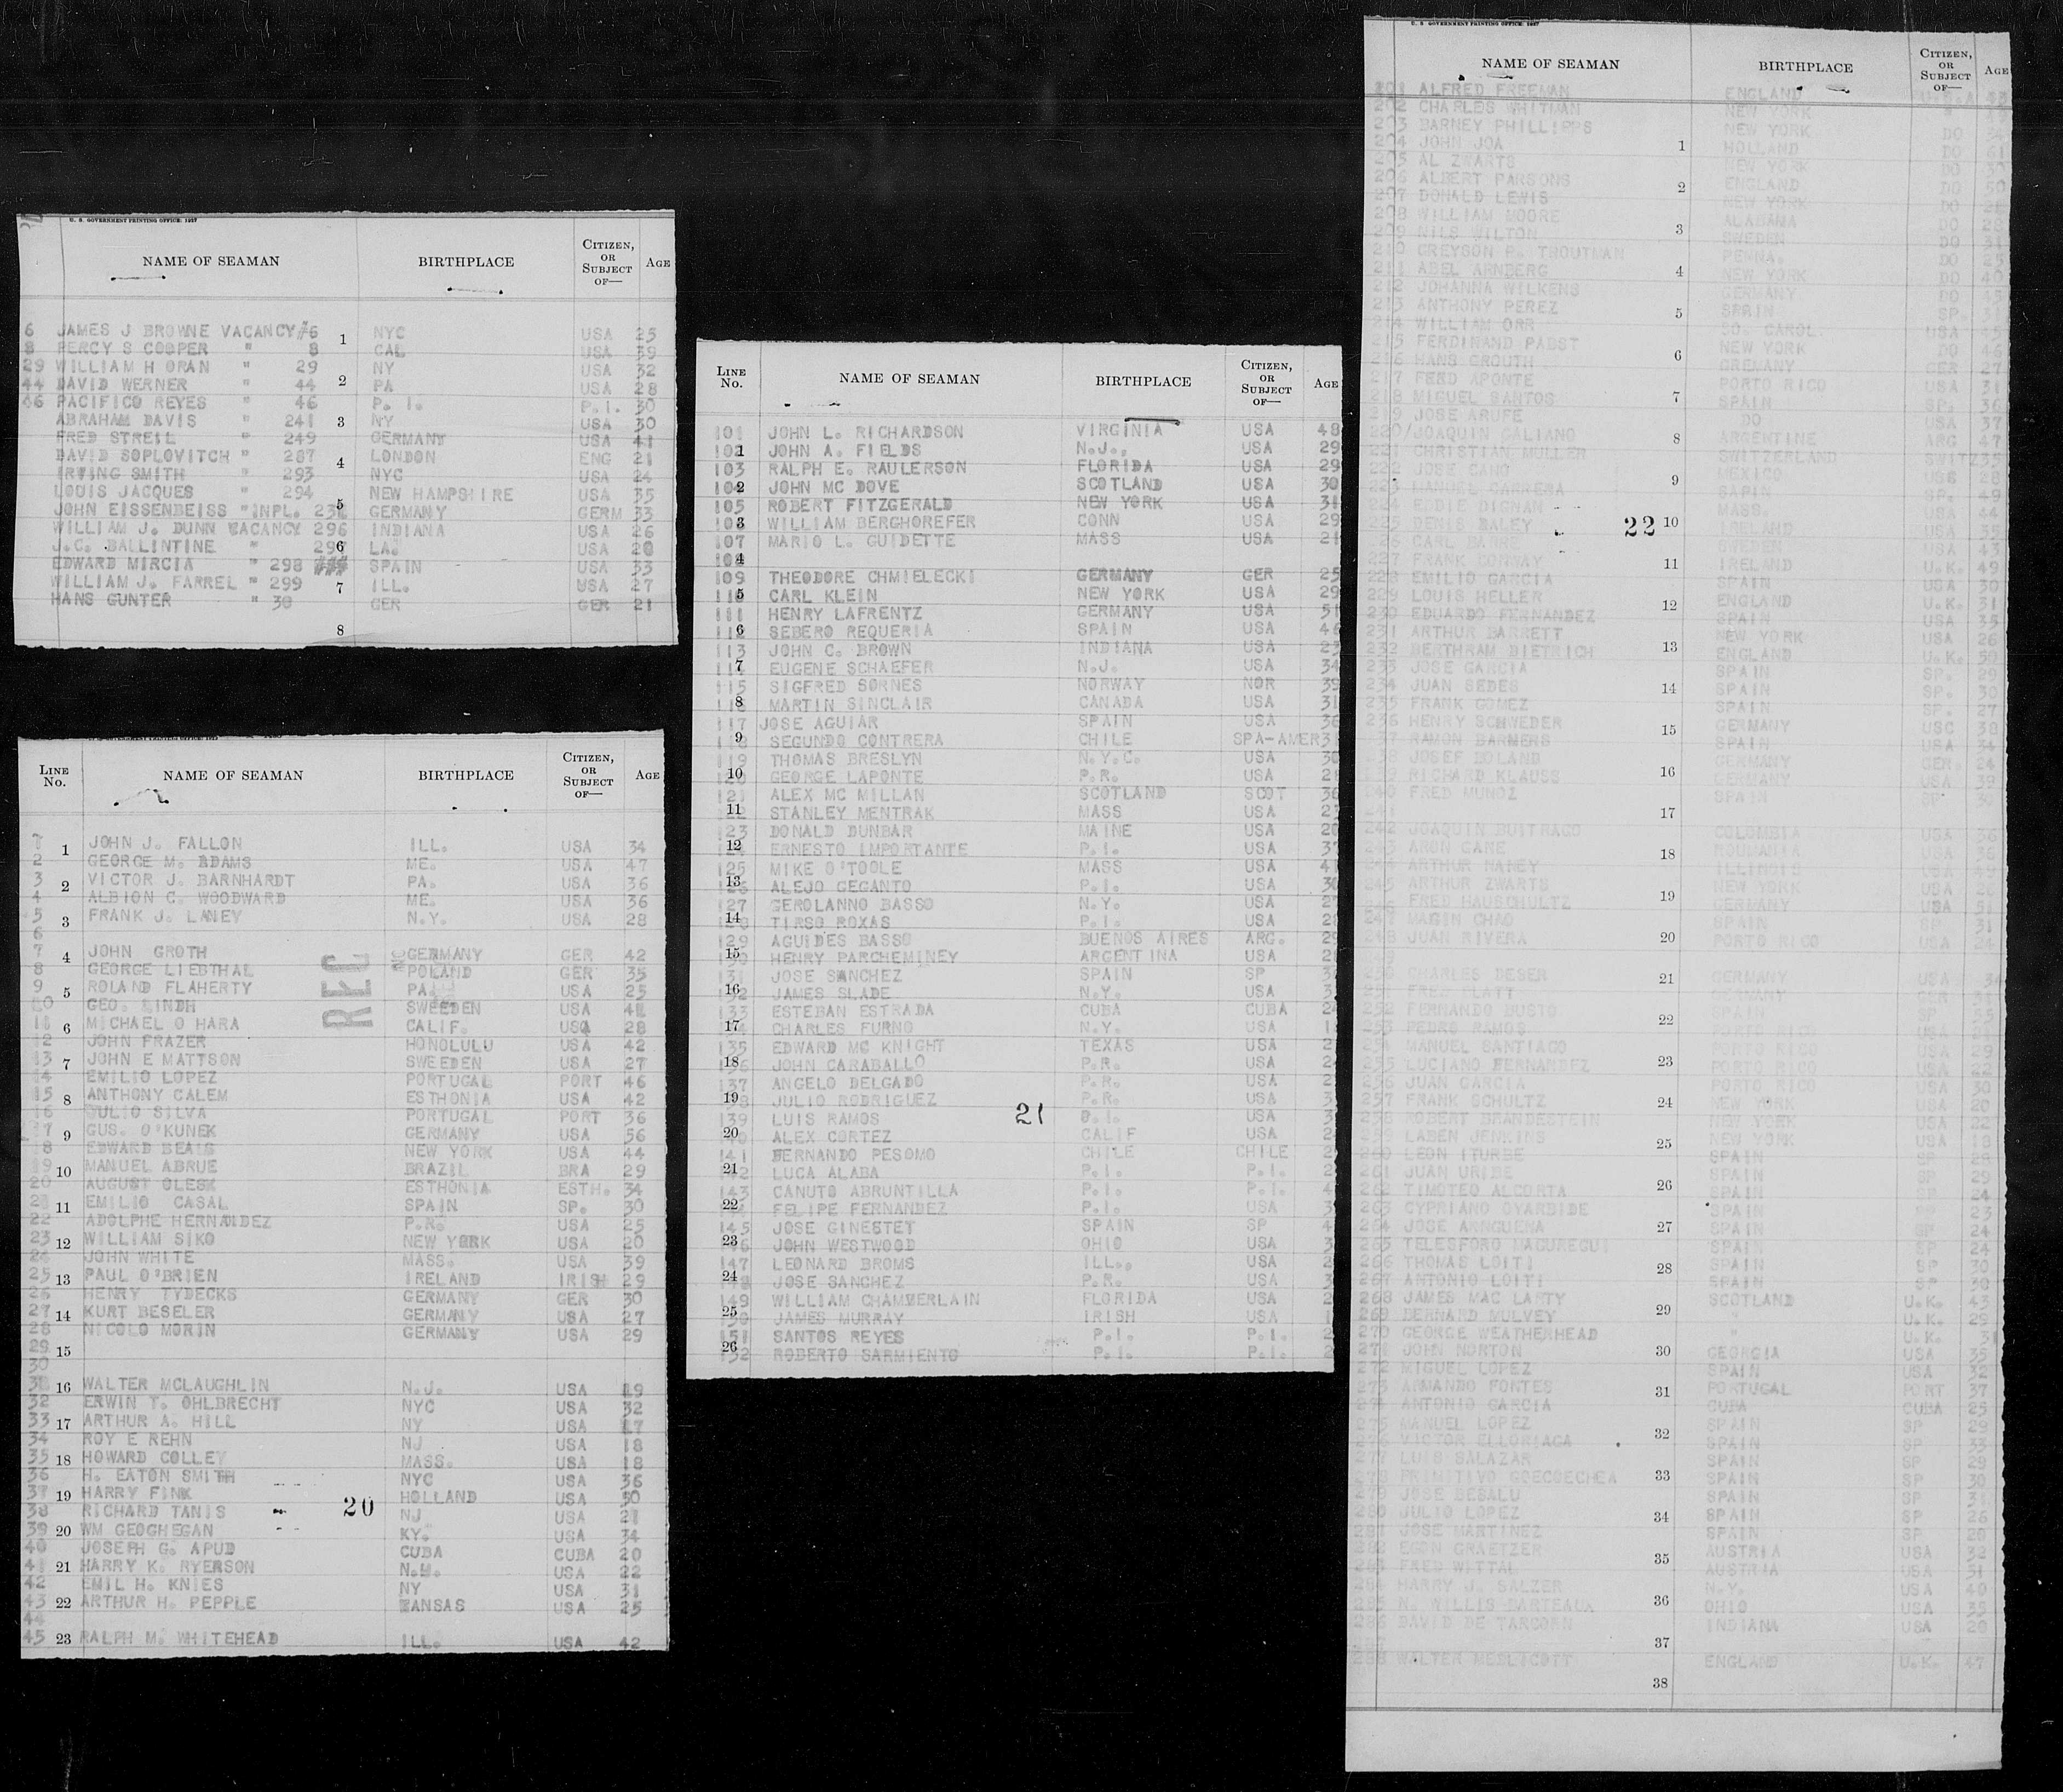 U. S. GOVERNMENT PRINTING OFFICE: 1927
NAME OF SEAMAN BIRTHPLACE CITIZEN, OR SUBJECT OF— AGE
6 JAMES J BROWNE VACANCY#6 1 NYC USA 25
8 PERCY S COOPER " 8 CAL USA 39
29 WILLIAM H ORAN " 29 NY USA 32
44 DAVID WERNER " 44 2 PA USA 28
46 PACIFICO REYES " 46 P.I. P.I. 30
ABRAHAM DAVIS " 241 3 NY USA 30
FRED STREIL " 249 GERMANY USA 41
DAVID SOPLOVITCH " 287 4 LONDON ENG 21
IRWING SMITH " 293 NYC USA 24
LOUIS JACQUES " 294 NEW HAMPSHIRE USA 35
JOHN EISSENBEISS "INPL. 5 GERMANY GERM 33
WILLIAM J. DUNN VACANCY 296 INDIANA USA 26
J.C. BALLINTINE " 6 LA. USA 20
EDWARD MIRCIA " 298 SPAIN USA 33
WILLIAM J. FARREL " 299 7 ILL. USA 27
HANS GUNTER " 30 GER GER 21
8
LINE NO. NAME OF SEAMAN BIRTHPLACE CITIZEN, OR SUBJECT OF— AGE
1 JOHN J. FALLON ILL. USA 34
2 GEORGE M. ADAMS ME. USA 47
3 2 VICTOR J. BARNHARDT PA. USA 36
4 ALBION C. WOODWARD ME. USA 36
5 3 FRANK J. LANEY N.Y. USA 28
6
7 4 JOHN GROTH GERMANY GER 42
8 GEORGE LIEBTHAL POLAND GER 35
9 5 ROLAND FLAHERTY PA. USA 25
GEO. LINDH SWEEDEN USA
REC
11 6 MICHAEL O HARA CALIF. USA 28
12 JOHN FRAZER HONOLULU USA 42
13 7 JOHN E MATTSON SWEEDEN USA 27
14 EMILIO LOPEZ PORTUGAL PORT 46
15 8 ANTHONY CALEM ESTHONIA USA 42
16 JULIO SILVA PORTUGAL PORT 36
17 9 GUS. O'KUNEK GERMANY USA 56
18 EDWARD BEALS NEW YORK USA 44
19 10 MANUEL ABRUE BRAZIL BRA 29
20 AUGUST OLESK ESTHONIA ESTH. 34
21 11 EMILIO CASAL SPAIN SP. 30
22 ADOLPHE HERNANDEZ P.R. USA 25
23 12 WILLIAM SIKO NEW YORK USA 20
24 JOHN WHITE MASS. USA 39
25 13 PAUL O'BRIEN IRELAND IRISH 29
26 HENRY TYDECKS GERMANY GER 30
27 14 KURT BESELER GERMANY USA 27
28 NICOLO MORIN GERMANY USA 29
29 15
30
16 WALTER MCLAUGHLIN N.J. USA 19
32 ERWIN T. OHLBRECHT NYC USA 32
33 17 ARTHUR A. HILL NY USA 17
34 ROY E REHN NJ USA 18
35 18 HOWARD COLLEY MASS. USA 18
36 H. EATON SMITH NYC USA 36
37 19 HARRY FINK HOLLAND USA 50
38 RICHARD TANIS 20 NJ USA 21
39 20 WM GEOGHEGAN KY. USA 34
40 JOSEPH G. APUD CUBA CUBA 20
41 21 HARRY K. RYERSON USA 22
42 EMIL H. KNIES NY USA 31
43 22 ARTHUR H. PEPPLE KANSAS USA 25
44
45 23 RALPH M. WHITEHEAD ILL. USA 42
LINE NO. NAME OF SEAMAN BIRTHPLACE CITIZEN, OR SUBJECT OF— AGE
101 JOHN L. RICHARDSON VIRGINIA USA 48
1 JOHN A. FIELDS N.J., USA 29
103 RALPH E. RAULERSON FLORIDA USA 29
2 JOHN MC DOVE SCOTLAND USA 30
105 ROBERT FITZGERALD NEW YORK USA 31
3 WILLIAM BERGHOREFER CONN USA 29
107 MARIO L. GUIDETTE MASS USA 21
4
109 THEODORE CHMIELECKI GERMANY GER 25
5 CARL KLEIN NEW YORK USA 29
111 HENRY LAFRENTZ GERMANY USA 51
6 SEBERO REQUERIA SPAIN USA
113 JOHN C. BROWN INDIANA USA
7 EUGENE SCHAEFER N.J. USA 34
115 SIGFRED SORNES NORWAY NOR 39
8 MARTIN SINCLAIR CANADA USA 31
117 JOSE AGUIAR SPAIN USA
9 SEGUNDO CONTRERA CHILE SPA-AMER
119 THOMAS BRESLYN N.Y.C. USA
10 GEORGE LAPONTE P.R. USA
121 ALEX MC MILLAN SCOTLAND SCOT
11 STANLEY MENTRAK MASS USA
123 DONALD DUNBAR MAINE USA
12 ERNESTO IMPORTANTE P.I. USA
125 MIKE O'TOOLE MASS USA
13 ALEJO GEGANTO P.I. USA
127 GEROLANNO BASSO N.Y. USA
14 TIRSO ROXAS P.I. USA
129 AGUIDES BASSO BUENOS AIRES ARG.
15 HENRY PARCHEMINEY ARGENTINA USA
131 JOSE SANCHEZ SPAIN SP
16 JAMES SLADE N.Y. USA
133 ESTEBAN ESTRADA CUBA CUBA
17 CHARLES FURNO N.Y. USA
135 EDWARD MC KNIGHT TEXAS USA
18 JOHN CARABALLO P.R. USA
137 ANGELO DELGADO P.R. USA
19 JULIO RODRIGUEZ P.R. USA
139 LUIS RAMOS 21 USA
20 ALEX CORTEZ CALIF USA
141 FERNANDO PESOMO CHILE CHILE
21 LUCA ALABA P.I. P.I.
143 CANUTO ABRUNTILLA P.I. P.I.
22 FELIPE FERNANDEZ P.I. USA
145 JOSE GINESTET SPAIN SP
23 JOHN WESTWOOD OHIO USA
147 LEONARD BROMS ILL., USA
24 JOSE SANCHEZ P.R. USA
149 WILLIAM CHAMBERLAIN FLORIDA USA
25 JAMES MURRAY IRISH USA
151 SANTOS REYES P.I. P.I.
26 ROBERTO SARMIENTO P.I. P.I.
U. S. GOVERNMENT PRINTING OFFICE: 1927
NAME OF SEAMAN BIRTHPLACE CITIZEN, OR SUBJECT OF— AGE
201 ALFRED FREEMAN ENGLAND
202 CHARLES WHITMAN NEW YORK
203 BARNEY PHILLIPPS NEW YORK DO
204 JOHN JOA 1 HOLLAND DO 61
205 AL ZWARTS NEW YORK DO
206 ALBERT PARSONS 2 ENGLAND DO 50
207 DONALD LEWIS NEW YORK DO
208 WILLIAM MOORE 3 ALABAMA DO
209 NILS WILTON SWEDEN DO 31
210 GREYSON P. TROUTMAN PENNA. DO 25
211 ABEL ARNBERG 4 NEW YORK DO 40
212 JOHANNA WILKENS GERMANY DO
213 ANTHONY PEREZ 5 SPAIN SP. 31
214 WILLIAM ORR SO. CAROL. USA 45
215 FERDINAND PABST NEW YORK DO 46
216 HANS GROUTH 6 GREMANY GER 27
217 FERD APONTE PORTO RICO USA 31
218 MIGUEL SANTOS 7 SPAIN SP. 36
219 JOSE ARUFE DO USA 37
220/JOAQUIN GALIANO 8 ARGENTINE ARG 47
221 CHRISTIAN MULLER SWITZERLAND SWITZ
222 JOSE CANO 9 MEXICO 28
223 MANUEL CARRERA SP. 49
224 EDDIE DIGNAN MASS. USA 44
225 DALEY 22 10 IRELAND USA
226 CARL SWEDEN USA 43
227 FRANK CONWAY 11 IRELAND U.K. 49
228 EMILIO GARCIA SPAIN USA 30
229 LOUIS HELLER 12 ENGLAND U.K. 31
230 EDUARDO FERNANDEZ SPAIN USA 35
231 ARTHUR BARRETT NEW YORK USA 26
232 BERTHRAM DIETRICH 13 ENGLAND U.K. 50
233 JOSE GARCIA SPAIN SP. 29
234 JUAN SEDES 14 SPAIN SP. 30
235 FRANK GOMEZ SPAIN SP. 27
236 HENRY SCHWEDER 15 GERMANY USC 38
237 RAMON BARNERS SPAIN USA 34
238 JOSEF BOLAND GERMANY GER. 24
RICHARD KLAUSS 16 GERMANY USA 39
FRED MUNOZ SPAIN SP 30
17
242 JOAQUIN BUITRAGO COLOMBIA USA 36
243 ARON GARE 18 ROUMANIA USA
ARTHUR HANEY ILLINOIS
245 ARTHUR ZWARTS 19 NEW YORK USA
FRED HAUSCHULTZ GERMANY USA 51
247 MARIN CHAO SPAIN SP 31
248 JUAN RIVERA 20 PORTO RICO USA 24
CHARLES BESER 21 GERMANY USA
FRED PLATT GERMANY GER
252 FERNANDO BUSTO 22 SPAIN SP
PEDRO RAMOS PORTO RICO USA
254 MANUEL SANTIAGO PORTO RICO USA 29
255 LUCIANO FERNANDEZ 23 PORTO RICO USA 22
256 JUAN GARCIA PORTO RICO USA 30
257 FRANK SCHULTZ 24 NEW YORK USA 20
258 ROBERT BRANDESTEIN NEW YORK USA 22
LABEN JENKINS 25 NEW YORK USA 18
260 LEON ITURBE SPAIN SP 28
261 JUAN URIBE SPAIN SP 29
262 TIMOTEO ALCORTA 26 SPAIN SP 24
263 CYPRIANO OYARBIDE SPAIN SP 23
264 JOSE ARNGUENA 27 SPAIN SP 24
265 TELESFORO MAGUREGUI SPAIN SP 24
266 THOMAS LOITI 28 SPAIN SP 30
267 ANTONIO LOITI SPAIN SP 30
268 JAMES MAC LAFTY 29 SCOTLAND U.K. 43
269 BERNARD MULVEY " U.K. 29
270 GEORGE WEATHERHEAD " U.K. 31
271 JOHN NORTON 30 GEORGIA USA 35
272 MIGUEL LOPEZ SPAIN USA 32
273 ARMANDO FONTES 31 PORTUGAL PORT 37
274 ANTONIO GARCIA CUBA CUBA 25
275 MANUEL LOPEZ 32 SPAIN SP 29
276 VICTOR ELLORIAGA SPAIN SP 33
277 LUIS SALAZAR SPAIN SP 29
278 PRIMITIVO GOECOECHEA 33 SPAIN SP 30
279 JOSE BESALU SPAIN SP 31
280 JULIO LOPEZ 34 SPAIN SP 26
281 JOSE MARTINEZ SPAIN SP 20
282 EGON GRAETZER 35 AUSTRIA USA 32
283 FRED WITTAL AUSTRIA USA 31
284 HARRY J. SALZER 36 N.Y. USA 40
285 N. WILLIS BARTEAUX OHIO USA 35
286 DAVID DE TARCORN INDIANA USA 20
37
288 WALTER MEDLICOTT ENGLAND U.K. 47
38